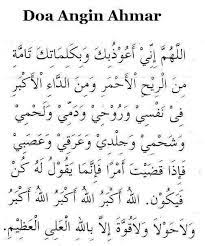 Doa Angin Ahmar
اَللّٰهُمَّ إِنِّيْ أَعُوْذُبِكَ وَبِكَلِمَاتِكَ تَامَّةِ
مِنَ الرِّيْحِ الْأَحْمَرِ وَمِنَ الدَّاءِ الْأَكْبَرِ
فِىْ نَفْسِيْ وَرُوْحِيْ وَدَمِّيْ وَلَحْمِيْ
وَشَحْمِيْ وَجِلْدِيْ وَعَرَقِيْ وَعَصَبِيْ
فَإِذَا قَضَيْتَ أَمْرًا فَإِنَّمَا يَقُوْلُ لَهُ كُنْ
فَيَكُوْنُ. اَللهُ أَكْبَرُ اَللهُ أَكْبَرُ اَللهُ أَكْبَرُ
وَلَاحَوْلَا وَلَاقُوَّةَ إِلَّا بِاللهِ الْعَلِيِّ الْعَظِيْمِ.